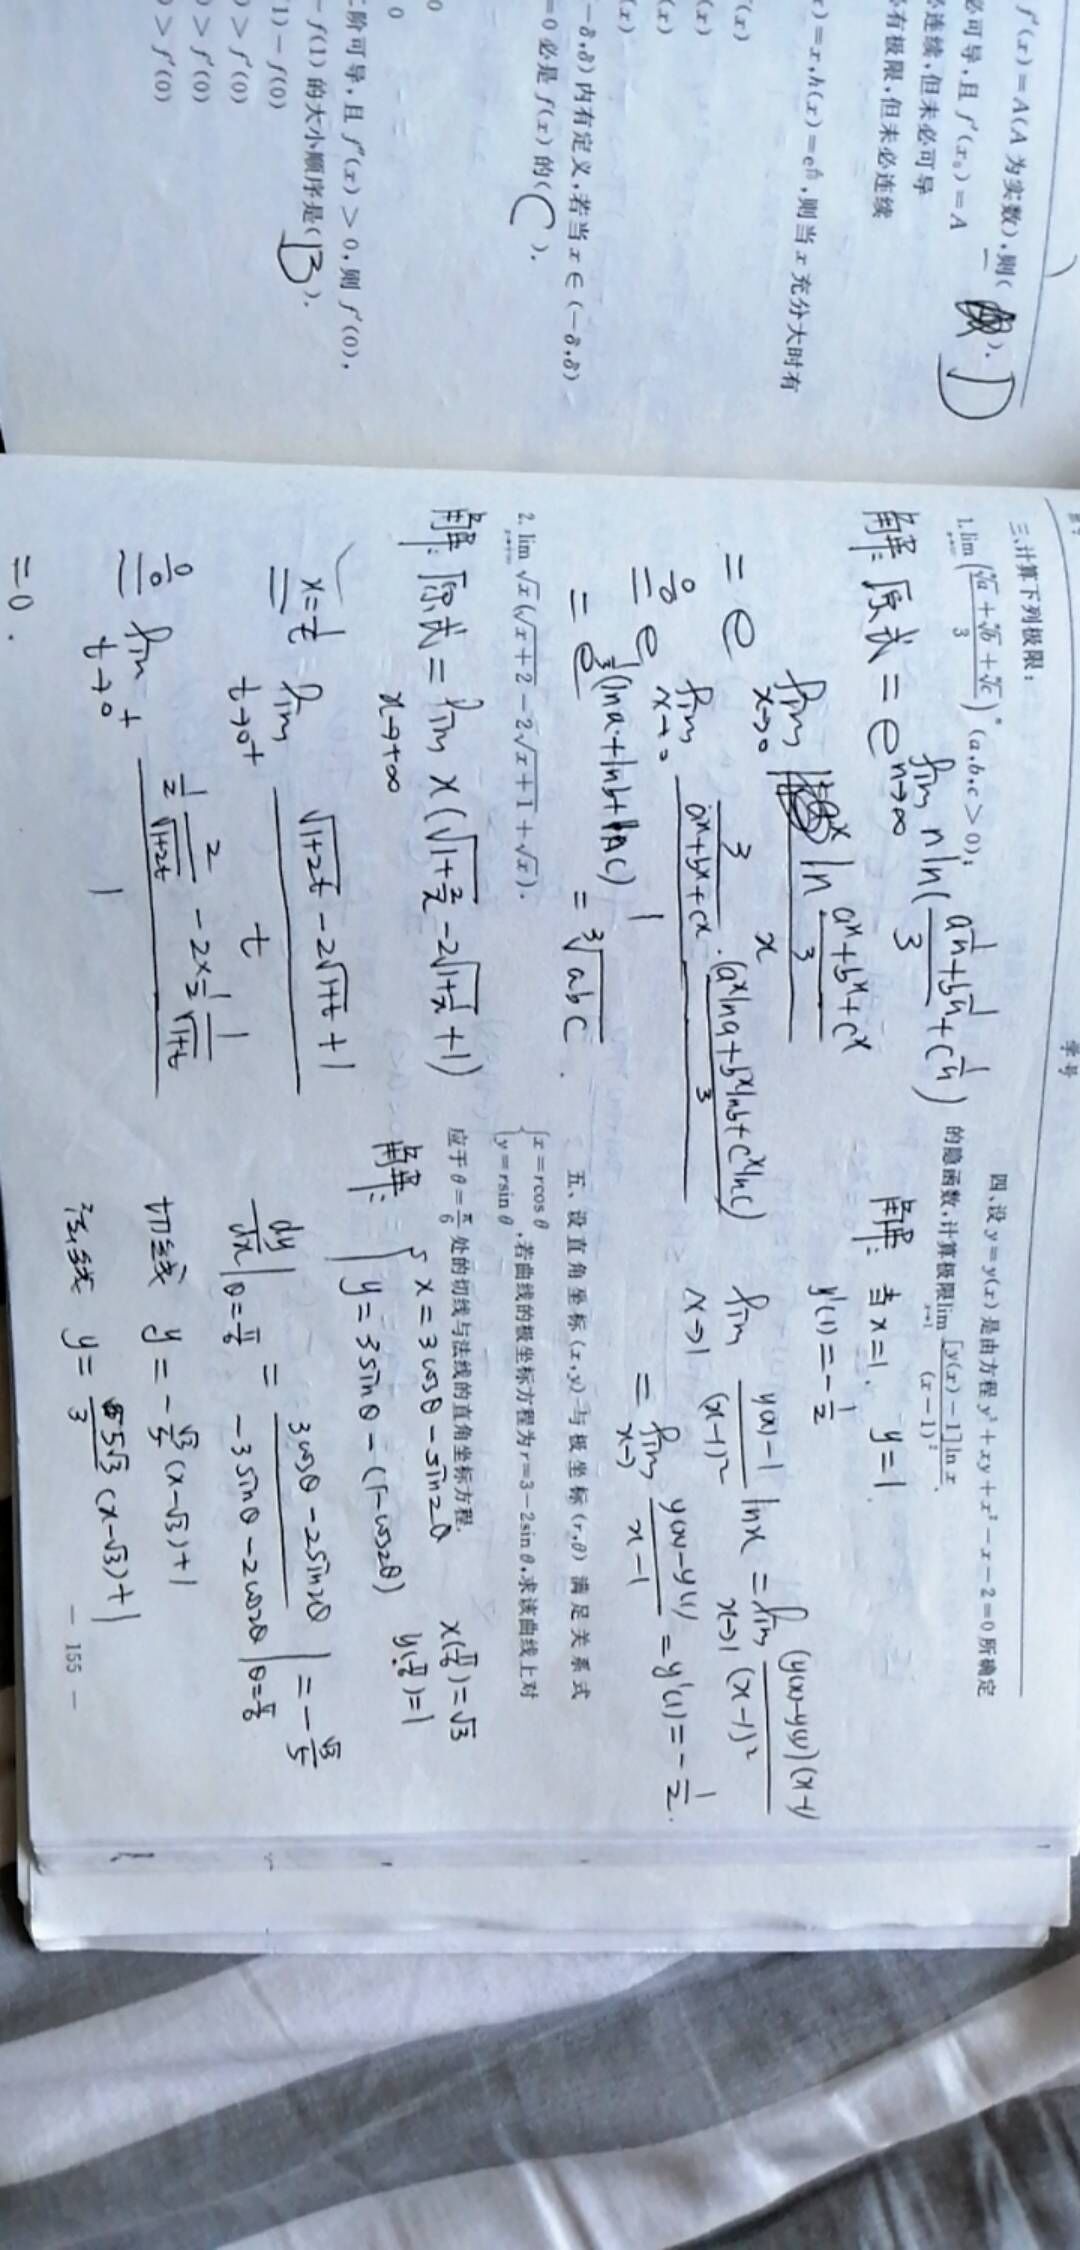 f′(x)=A(A 为实数),则( ). D
必可导,且 f′(x₀)=A
必连续,但未必可导
必有极限,但未必连续
x)=x,h(x)=e^{},则当 x 充分大时有
(x)
(x)
(x)
(x)
−δ,δ)内有定义,若当 x∈(−δ,δ)
=0 必是 f(x) 的( C ).
0
0
阶可导,且 f″(x)>0,则 f′(0),
−f(1) 的大小顺序是( B ).
1)−f(0)
>f′(0)
>f′(0)
>f′(0)
学号
三、计算下列极限:
1. lim_{n→∞} ((ⁿ√a+ⁿ√b+ⁿ√c)/3)ⁿ (a,b,c>0);
解: 原式 = e^{lim_{n→∞} n ln((a^{1/n}+b^{1/n}+c^{1/n})/3)}
= e^{lim_{x→0} ln((a^x+b^x+c^x)/3)/x}
0/0 = e^{lim_{x→0} 3/(a^x+b^x+c^x)·(a^x lna+b^x lnb+c^x lnc)/3 / 1}
= e^{1/3(lna+lnb+lnc)} = ³√abc .
2. lim_{x→+∞} √x(√x+2−2√x+1+√x).
解: 原式 = lim_{x→+∞} x(√1+2/x−2√1+1/x+1)
x=1/t = lim_{t→0⁺} (√1+2t−2√1+t+1)/t
0/0 = lim_{t→0⁺} (1/2 2/√1+2t − 2×1/2 1/√1+t)/1
=0.
四、设 y=y(x) 是由方程 y³+xy+x²−x−2=0 所确定
的隐函数,计算极限 lim_{x→1} [y(x)−1]ln x/(x−1)².
解: 当 x=1, y=1.
y′(1)=−1/2
lim_{x→1} (y(x)−1)/(x−1)² lnx = lim_{x→1} (y(x)−y(1))(x−1)/(x−1)²
= lim_{x→1} (y(x)−y(1))/(x−1) = y′(1)=−1/2.
五、设直角坐标 (x,y) 与极坐标 (r,θ) 满足关系式
{x=rcos θ
y=rsin θ ,若曲线的极坐标方程为 r=3−2sin θ,求该曲线上对
应于 θ=π/6 处的切线与法线的直角坐标方程.
解: { x=3cosθ−sin2θ x(π/6)=√3
y=3sinθ−(1−cos2θ) y(π/6)=1
dy/dx|θ=π/6 = (3cosθ−2sin2θ)/(−3sinθ−2cos2θ)|θ=π/6 = −√3/5
切线 y=−√3/5(x−√3)+1
法线 y=5√3/3(x−√3)+1
— 155 —